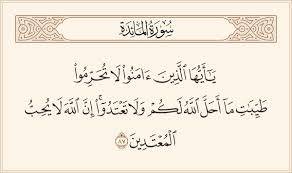 سُورَةُ المَائِدَةِ
يَٰٓأَيُّهَا ٱلَّذِينَ ءَامَنُوا۟ لَا تُحَرِّمُوا۟
طَيِّبَٰتِ مَآ أَحَلَّ ٱللَّهُ لَكُمْ وَلَا تَعْتَدُوٓا۟ ۚ إِنَّ ٱللَّهَ لَا يُحِبُّ
ٱلْمُعْتَدِينَ ٨٧